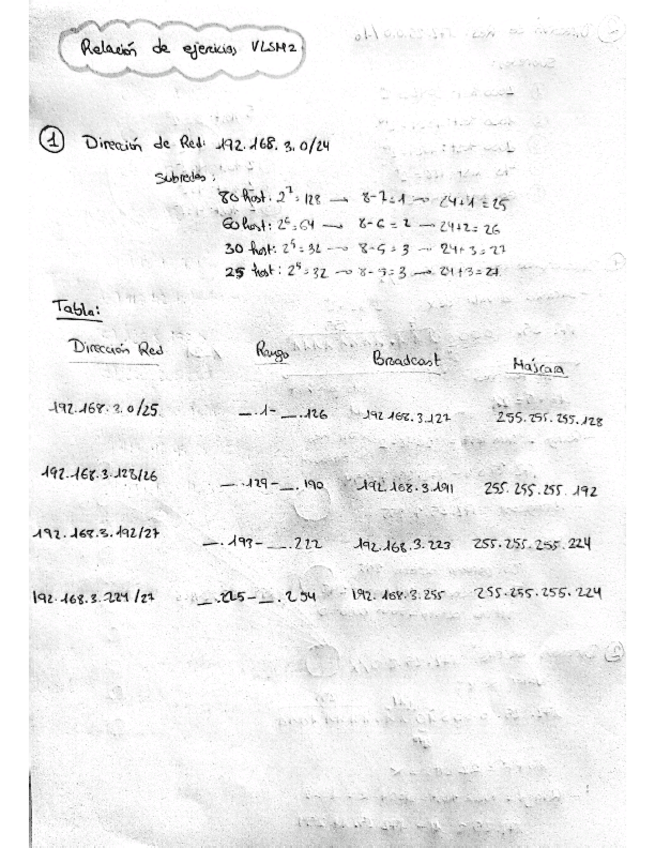 Relación de ejercicios VLSM2
① Dirección de Red: 192.168.3.0/24
Subredes:
80 host: 2⁷=128 → 8-7=1 → 24+1=25
60 host: 2⁶=64 → 8-6=2 → 24+2=26
30 host: 2⁵=32 → 8-5=3 → 24+3=27
25 host: 2⁵=32 → 8-5=3 → 24+3=27
Tabla:
Dirección Red Rango Broadcast Máscara
192.168.3.0/25 __.1-__.126 192.168.3.127 255.255.255.128
192.168.3.128/26 __.129-__.190 192.168.3.191 255.255.255.192
192.168.3.192/27 __.193-__.222 192.168.3.223 255.255.255.224
192.168.3.224/27 __.225-__.254 192.168.3.255 255.255.255.224